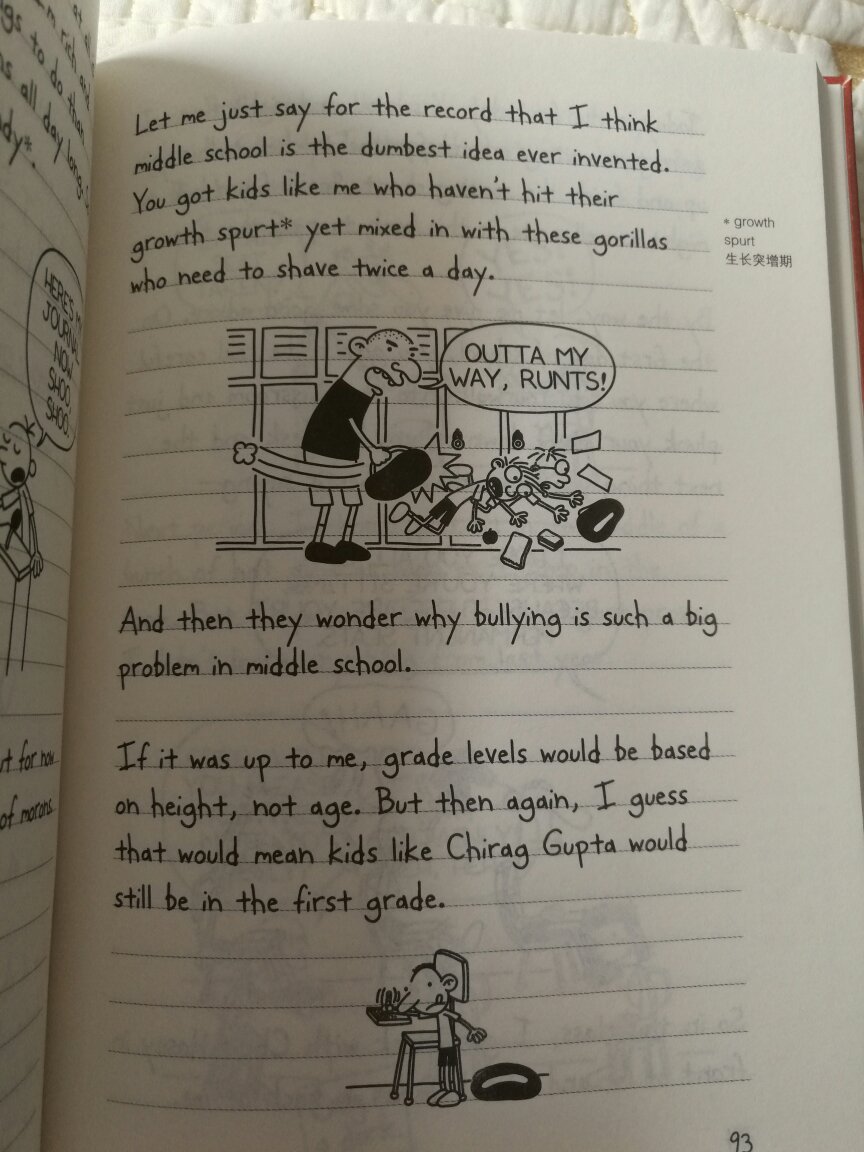 m rich and
gs to do than
s all day long.
dy*.
HERE'S MY
JOURNAL
NOW
SHOO,
SHOO.
rt for now
of morons.
Let me just say for the record that I think
middle school is the dumbest idea ever invented.
You got kids like me who haven't hit their
growth spurt* yet mixed in with these gorillas
who need to shave twice a day.
* growth
spurt
生长突增期
OUTTA MY
WAY, RUNTS!
And then they wonder why bullying is such a big
problem in middle school.
If it was up to me, grade levels would be based
on height, not age. But then again, I guess
that would mean kids like Chirag Gupta would
still be in the first grade.
93